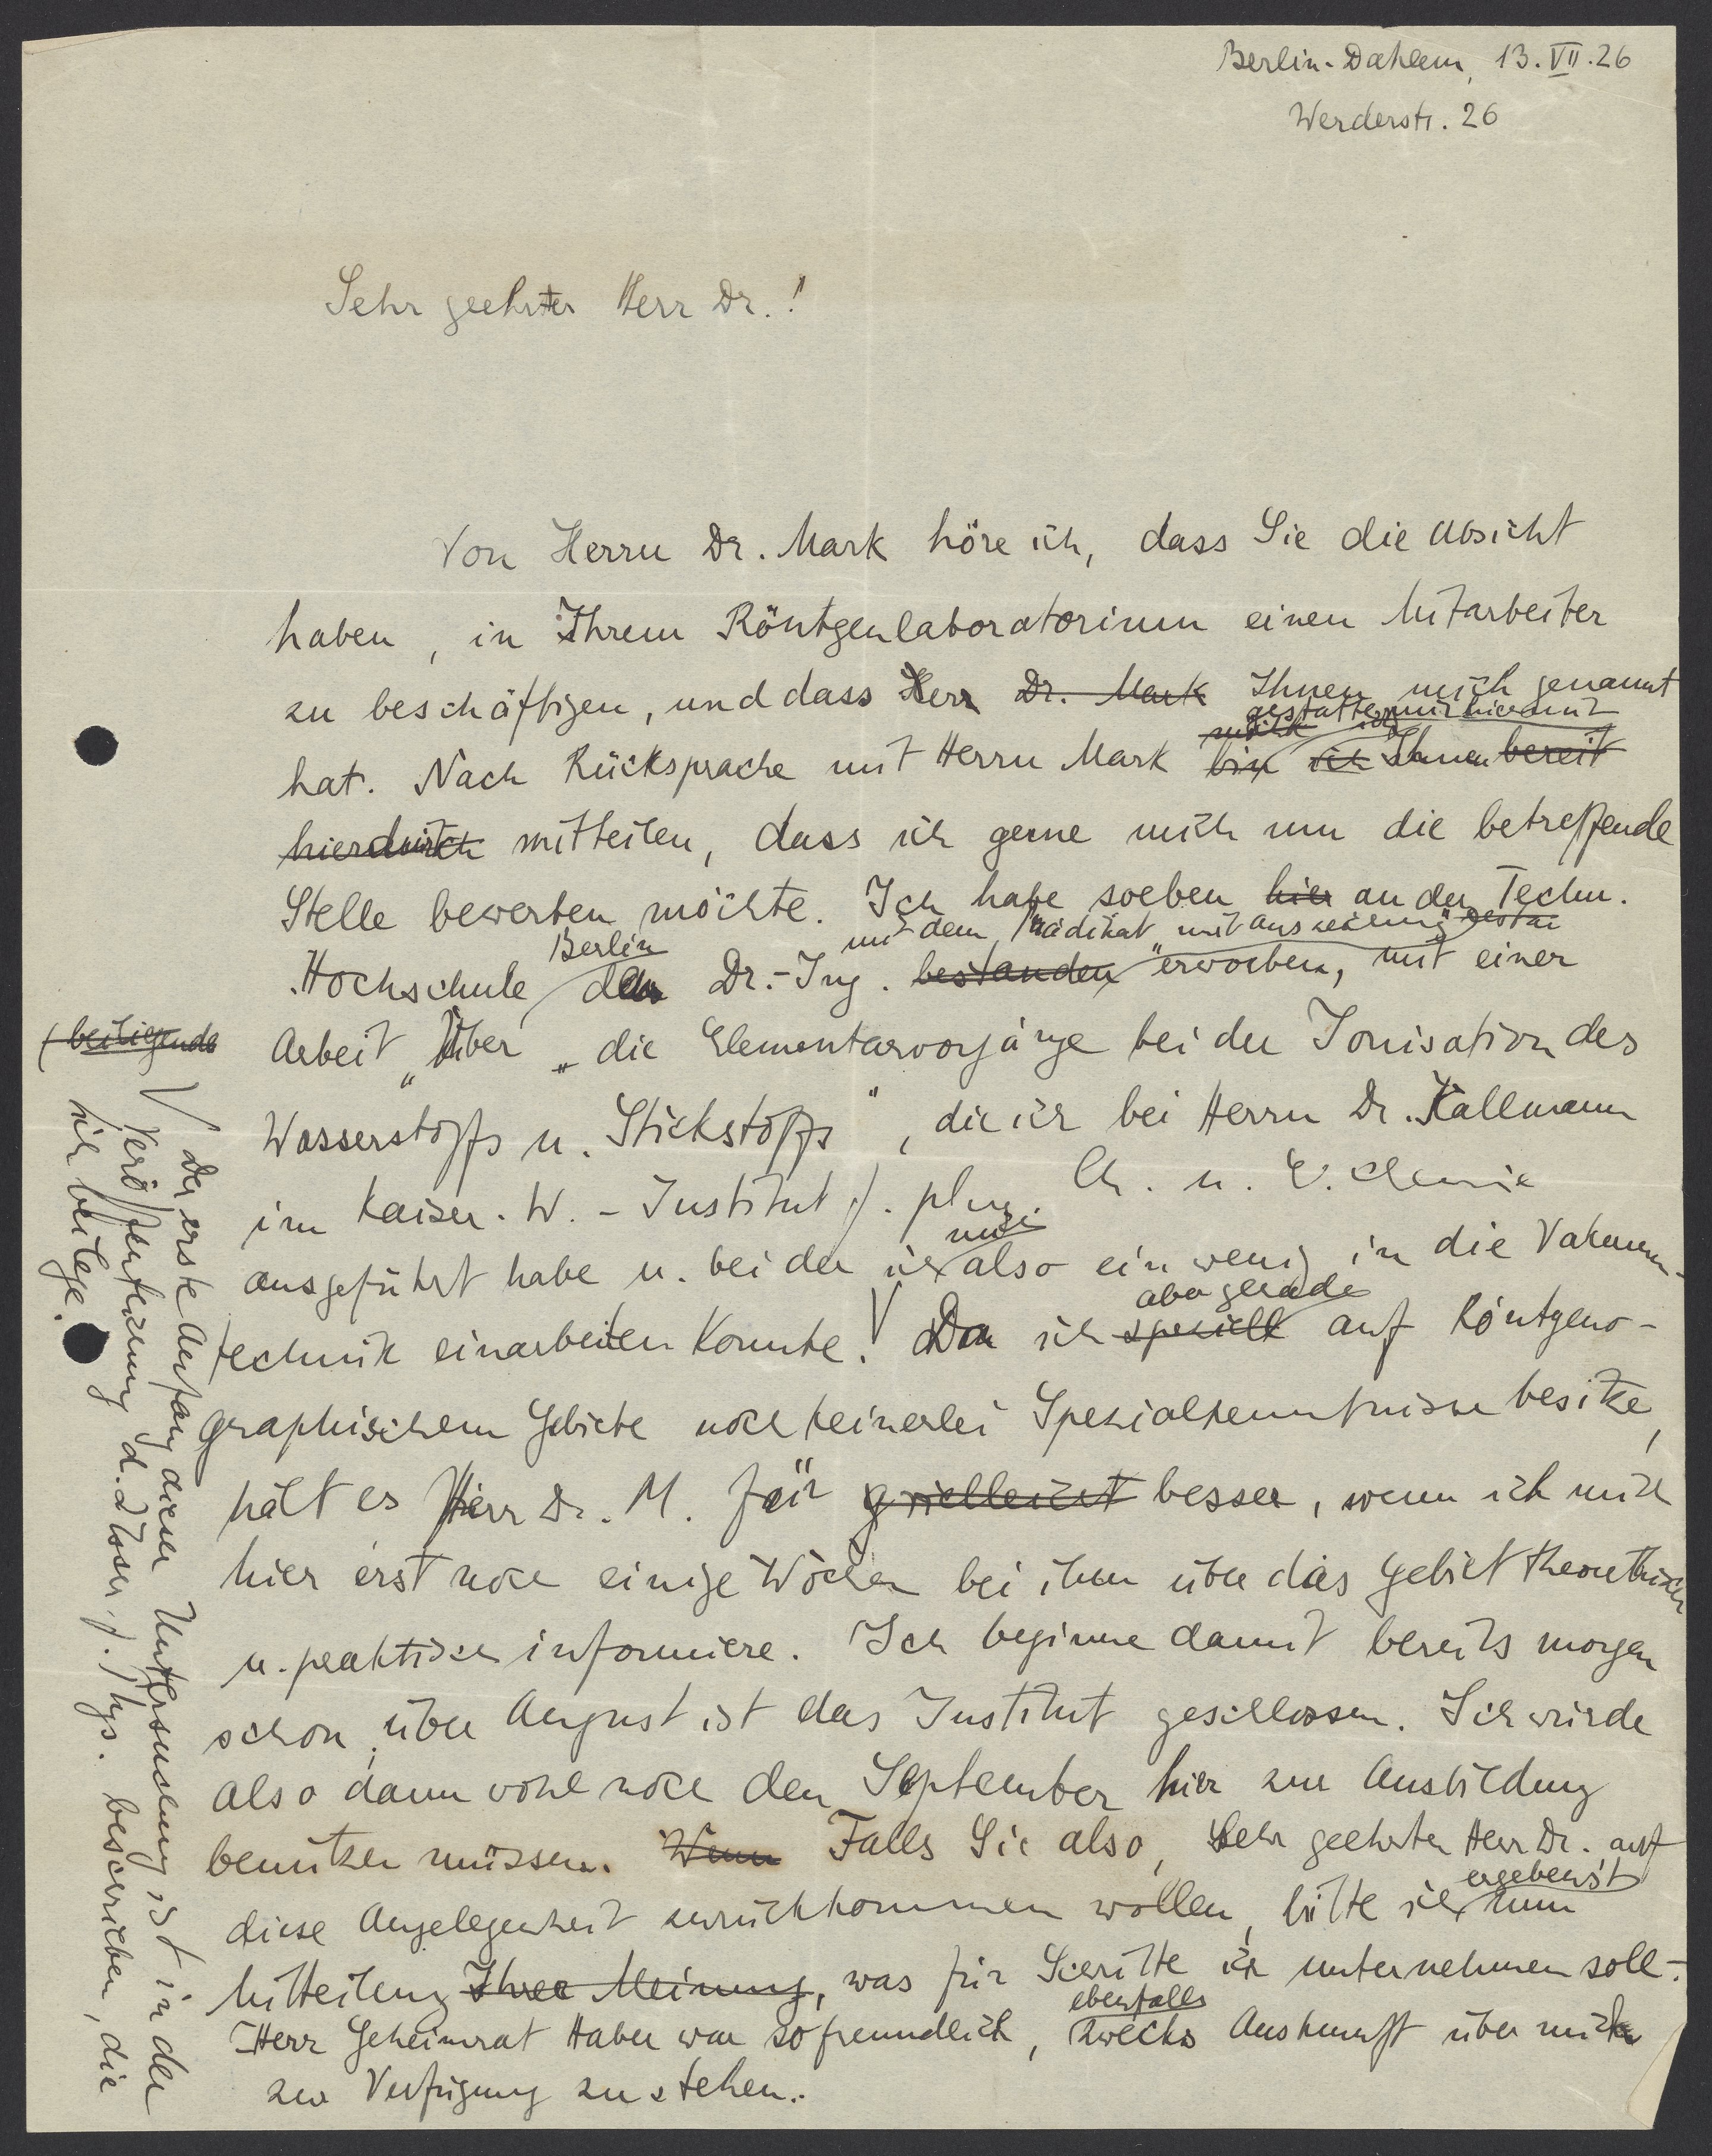 Berlin-Dahlem, 13. VII. 26
Werderstr. 26
Sehr geehrter Herr Dr.!
Von Herrn Dr. Mark höre ich, dass Sie die Absicht
haben, in Ihrem Röntgenlaboratorium einen Mitarbeiter
zu beschäftigen, und dass Herr Dr. Mark Ihnen mich genannt
gestatte mir hiermit
hat. Nach Rücksprache mit Herrn Mark bin ich Ihnen bereit
hierdurch mitteilen, dass ich gerne mich um die betreffende
Stelle bewerben möchte. Ich habe soeben hier an der Techn.
Berlin mit dem Prädikat "mit Auszeichnung"
Hochschule den Dr.-Ing. bestanden erworben, mit einer
Arbeit "Über "die Elementarvorgänge bei der Ionisation des
Wasserstoffs u. Stickstoffs", die ich bei Herrn Dr. Kallmann
im Kaiser. W.-Institut f. phys. Ch. u. E. Chemie
mich
ausgeführt habe u. bei der ich also ein wenig in die Vakuum-
aber gerade
technik einarbeiten konnte. Da ich speziell auf Röntgeno-
graphischem Gebiete noch keinerlei Spezialkenntnisse besitze,
hält es Herr Dr. M. für vielleicht besser, wenn ich mich
hier erst noch einige Wochen bei ihm über das Gebiet theoretisch
u. praktisch informiere. Ich beginne damit bereits morgen
schon, über August ist das Institut geschlossen. Ich würde
also dann wohl noch den September hier zur Ausbildung
benützen müssen. Wenn Falls Sie also, sehr geehrter Herr Dr. auf
ergebenst
diese Angelegenheit zurückkommen wollen, bitte ich um
Mitteilung Ihrer Meinung, was für Schritte ich unternehmen soll.
ebenfalls
Herr Geheimrat Haber war so freundlich, zwecks Auskunft über mich
zur Verfügung zu stehen.
beiliegende
Der erste Anfang dieser Untersuchung ist in der
Veröffentlichung d. Ztschr. f. Phys. beschrieben, die
ich beilege.